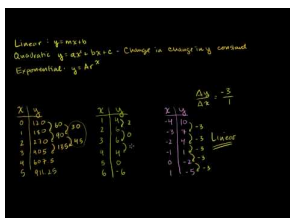 Linear: y=mx+b
Quadratic y=ax²+bx+c - Change in change in y constant
Exponential: y=Ar^x
Δy/Δx = -3/1
x y
0 120
1 180
2 270
3 405
4 607.5
5 911.25
60 30
90 45
135
x y
1 4
2 6
3 6
4 4
5 0
6 -6
2
0
x y
-4 10
-3 7
-2 4
-1 1
0 -2
1 -5
-3
-3
-3
-3
-3
Linear